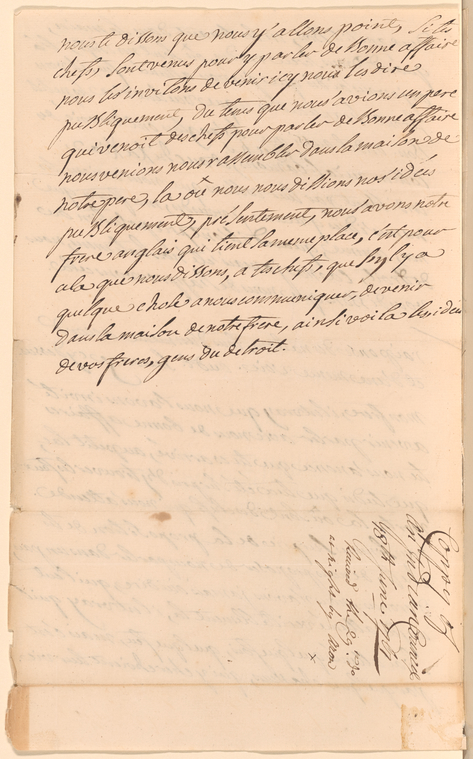 nous te dissons que nous y'allons point, Si les
chefs, sont venus pour y parler de Bonne affaire
nous les invitons de venir icy nous les dire
publiquement, du tems que nous avions un pere
qui venoit des chefs pour parler de Bonne affaire
nous venions nous rassembler dans la maison de
notre pere, la où nous nous dissions nos idées
publiquement, présentement, nous avons notre
frere anglais qui tient la meme place, c'est pour
cela que nous dissons, a tes chefs, que s'il y a
quelque chose a nous communiquer, de venir
dans la maison de notre frere, ainsi voila les idées
de vos freres, gens du detroit.
Copy of
an Indian Council
18th June
the 29
by